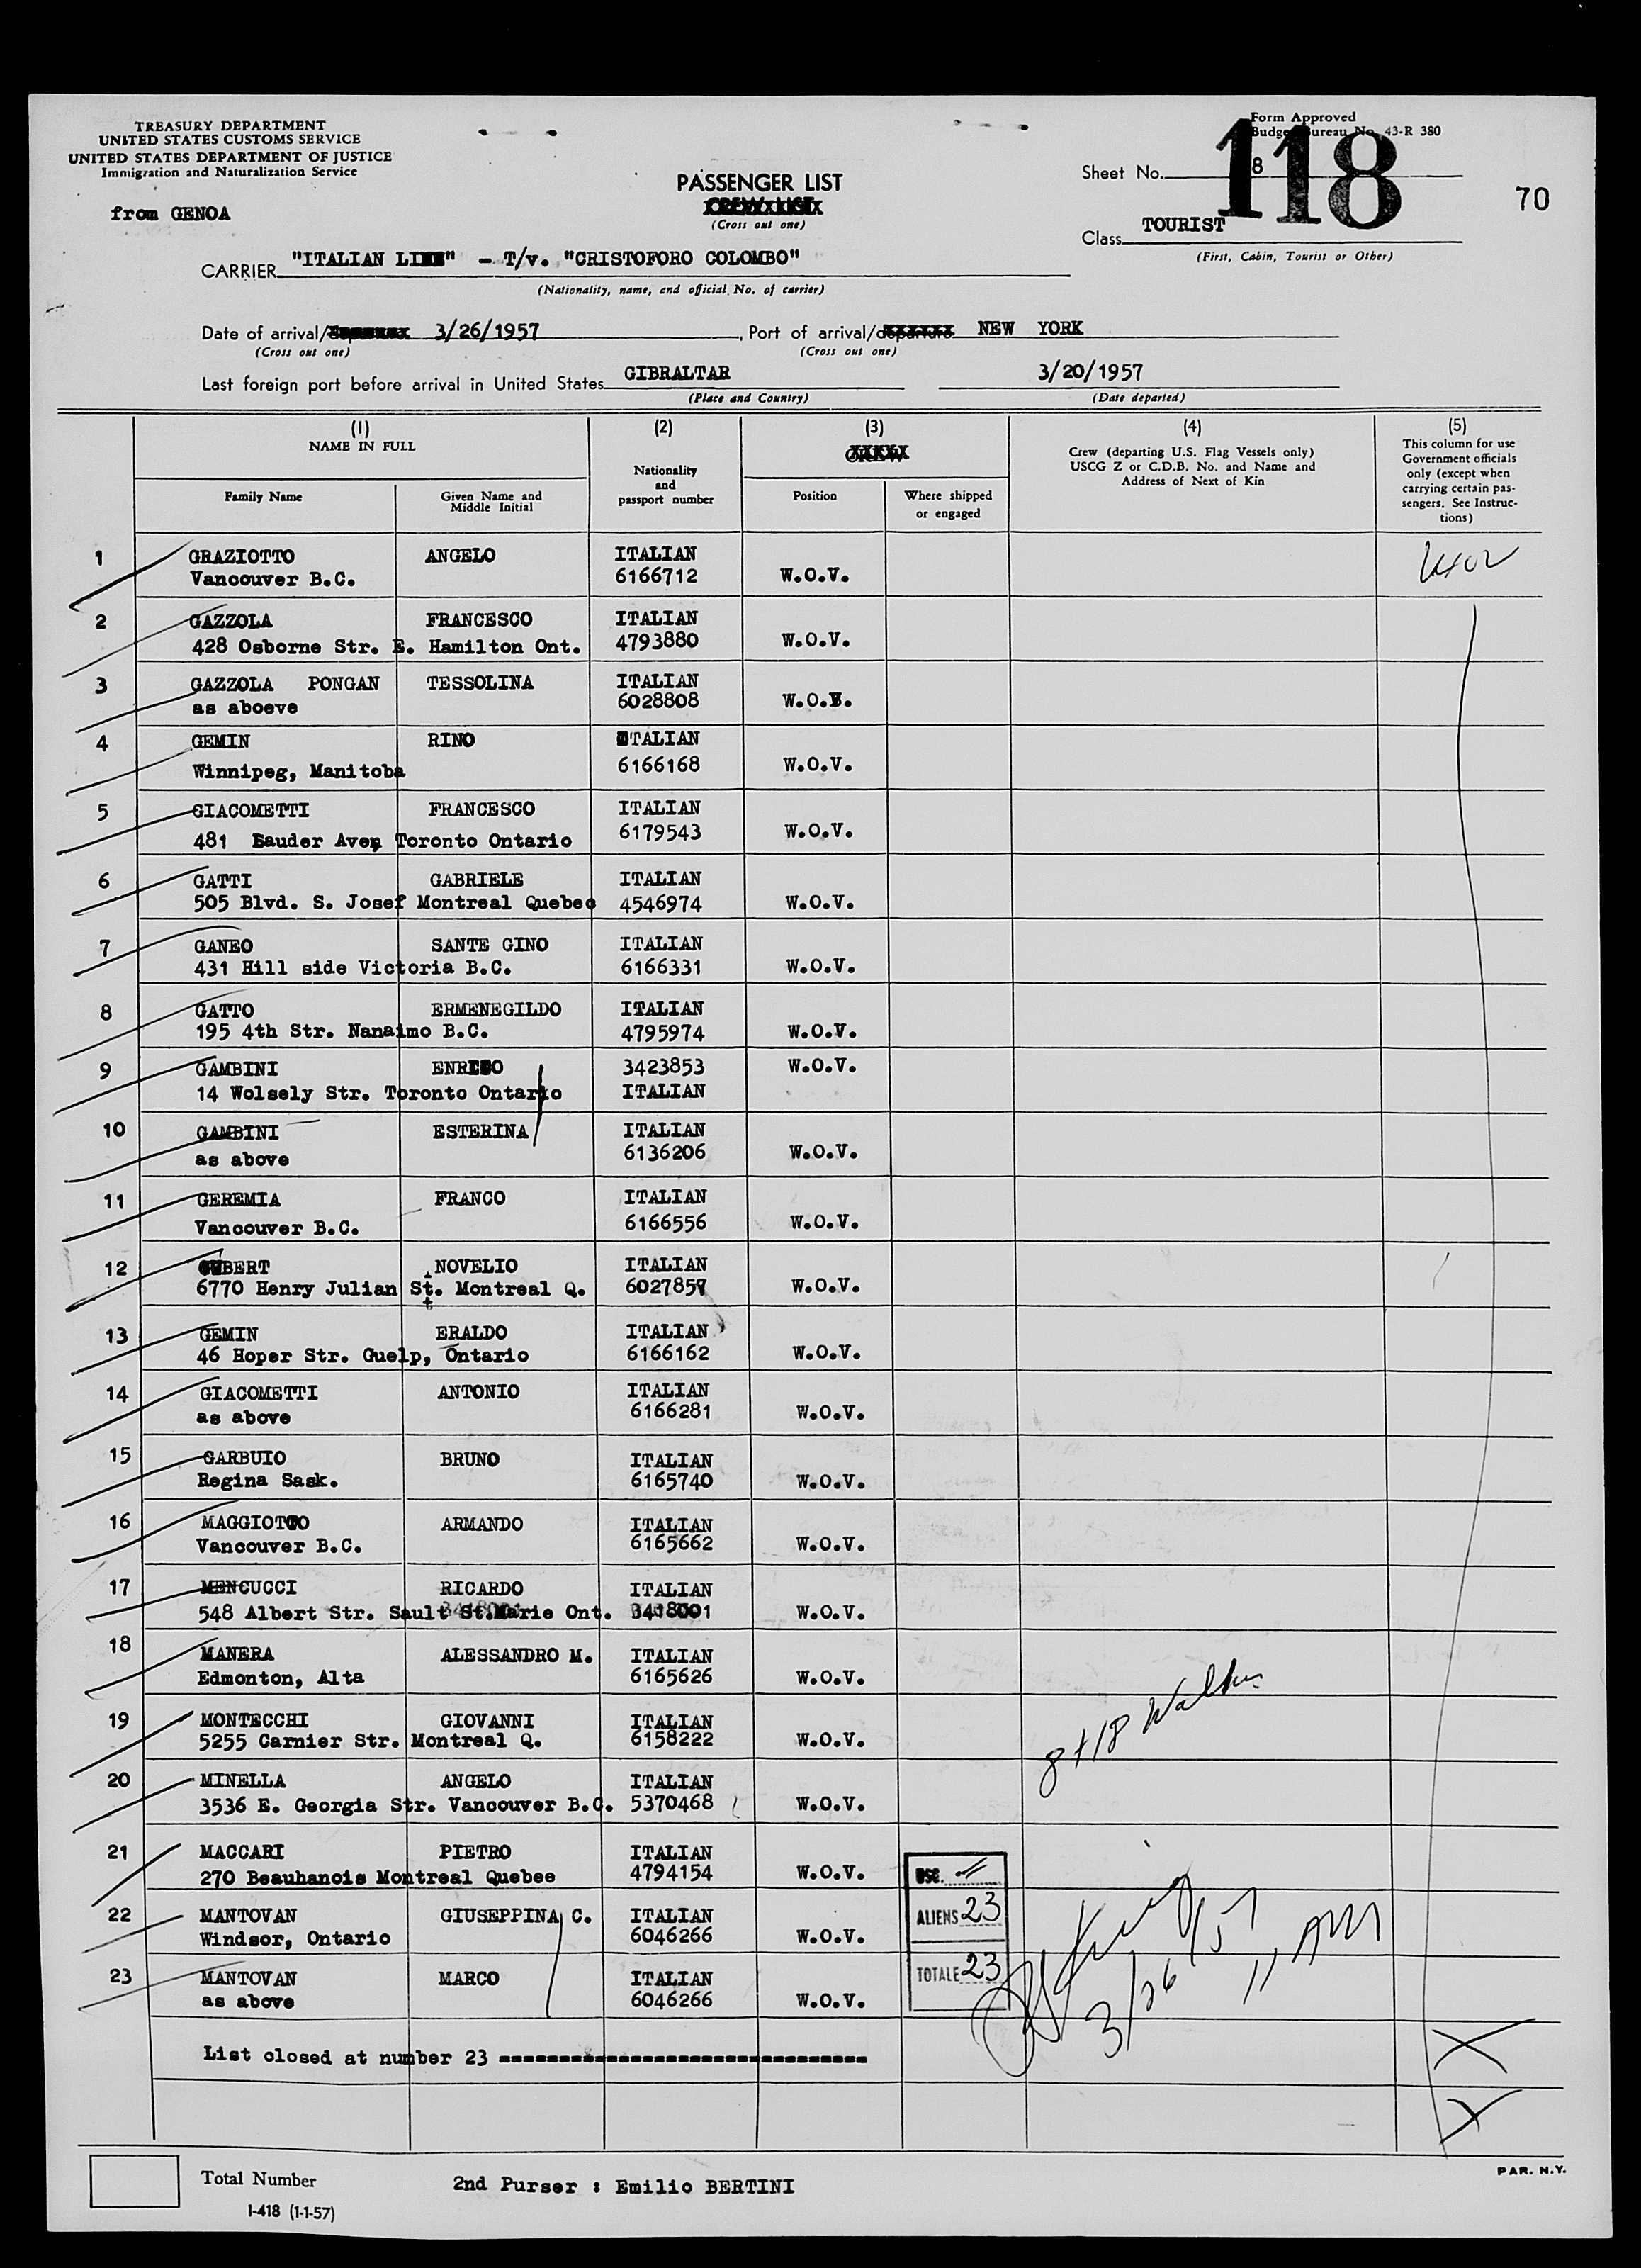 TREASURY DEPARTMENT
UNITED STATES CUSTOMS SERVICE
UNITED STATES DEPARTMENT OF JUSTICE
Immigration and Naturalization Service
from GENOA
PASSENGER LIST
(Cross out one)
Form Approved
Budget Bureau No. 43-R 380
Sheet No. 8
118
70
Class TOURIST
(First, Cabin, Tourist or Other)
CARRIER "ITALIAN LINE" - T/v. "CRISTOFORO COLOMBO"
(Nationality, name, and official No. of carrier)
Date of arrival/ 3/26/1957, Port of arrival/departure NEW YORK
(Cross out one) (Cross out one)
Last foreign port before arrival in United States GIBRALTAR 3/20/1957
(Place and Country) (Date departed)
(1) (2) (3) (4) (5)
NAME IN FULL
Family Name
Given Name and Middle Initial
Nationality and passport number
CREW
Position
Where shipped or engaged
Crew (departing U.S. Flag Vessels only)
USCG Z or C.D.B. No. and Name and
Address of Next of Kin
This column for use
Government officials
only (except when
carrying certain pas-
sengers. See Instruc-
tions)
1 GRAZIOTTO ANGELO ITALIAN
Vancouver B.C. 6166712 W.O.V.
2 GAZZOLA FRANCESCO ITALIAN
428 Osborne Str. E. Hamilton Ont. 4793880 W.O.V.
3 GAZZOLA PONGAN TESSOLINA ITALIAN
as aboeve 6028808 W.O.V.
4 GEMIN RINO ITALIAN
Winnipeg, Manitoba 6166168 W.O.V.
5 GIACOMETTI FRANCESCO ITALIAN
481 Bauder Ave, Toronto Ontario 6179543 W.O.V.
6 GATTI GABRIELE ITALIAN
505 Blvd. S. Josef Montreal Quebec 4546974 W.O.V.
7 GANEO SANTE GINO ITALIAN
431 Hill side Victoria B.C. 6166331 W.O.V.
8 GATTO ERMENEGILDO ITALIAN
195 4th Str. Nanaimo B.C. 4795974 W.O.V.
9 GAMBINI ENRICO 3423853 W.O.V.
14 Wolsely Str. Toronto Ontario ITALIAN
10 GAMBINI ESTERINA ITALIAN
as above 6136206 W.O.V.
11 GEREMIA FRANCO ITALIAN
Vancouver B.C. 6166556 W.O.V.
12 GUBERT NOVELIO ITALIAN
6770 Henry Julian St. Montreal Q. 6027857 W.O.V.
13 GEMIN ERALDO ITALIAN
46 Hoper Str. Guelp, Ontario 6166162 W.O.V.
14 GIACOMETTI ANTONIO ITALIAN
as above 6166281 W.O.V.
15 GARBUIO BRUNO ITALIAN
Regina Sask. 6165740 W.O.V.
16 MAGGIOTTO ARMANDO ITALIAN
Vancouver B.C. 6165662 W.O.V.
17 MENCUCCI RICARDO ITALIAN
548 Albert Str. Sault St.Marie Ont. 3418001 W.O.V.
18 MANERA ALESSANDRO M. ITALIAN
Edmonton, Alta 6165626 W.O.V.
19 MONTECCHI GIOVANNI ITALIAN
5255 Carnier Str. Montreal Q. 6158222 W.O.V.
8+18
20 MINELLA ANGELO ITALIAN
3536 E. Georgia Str. Vancouver B.C. 5370468 W.O.V.
21 MACCARI PIETRO ITALIAN
270 Beauhanois Montreal Quebee 4794154 W.O.V.
USC.
22 MANTOVAN GIUSEPPINA C. ITALIAN
Windsor, Ontario 6046266 W.O.V.
ALIENS 23
23 MANTOVAN MARCO ITALIAN
as above 6046266 W.O.V.
TOTALE 23
3/26/57 11 AM
List closed at number 23
Total Number
2nd Purser : Emilio BERTINI
I-418 (1-1-57)
PAR. N.Y.